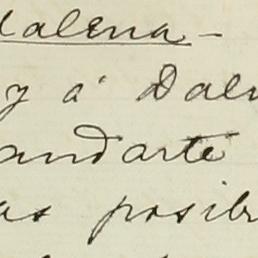 dalena-
y á Dale
andarte
as posibl